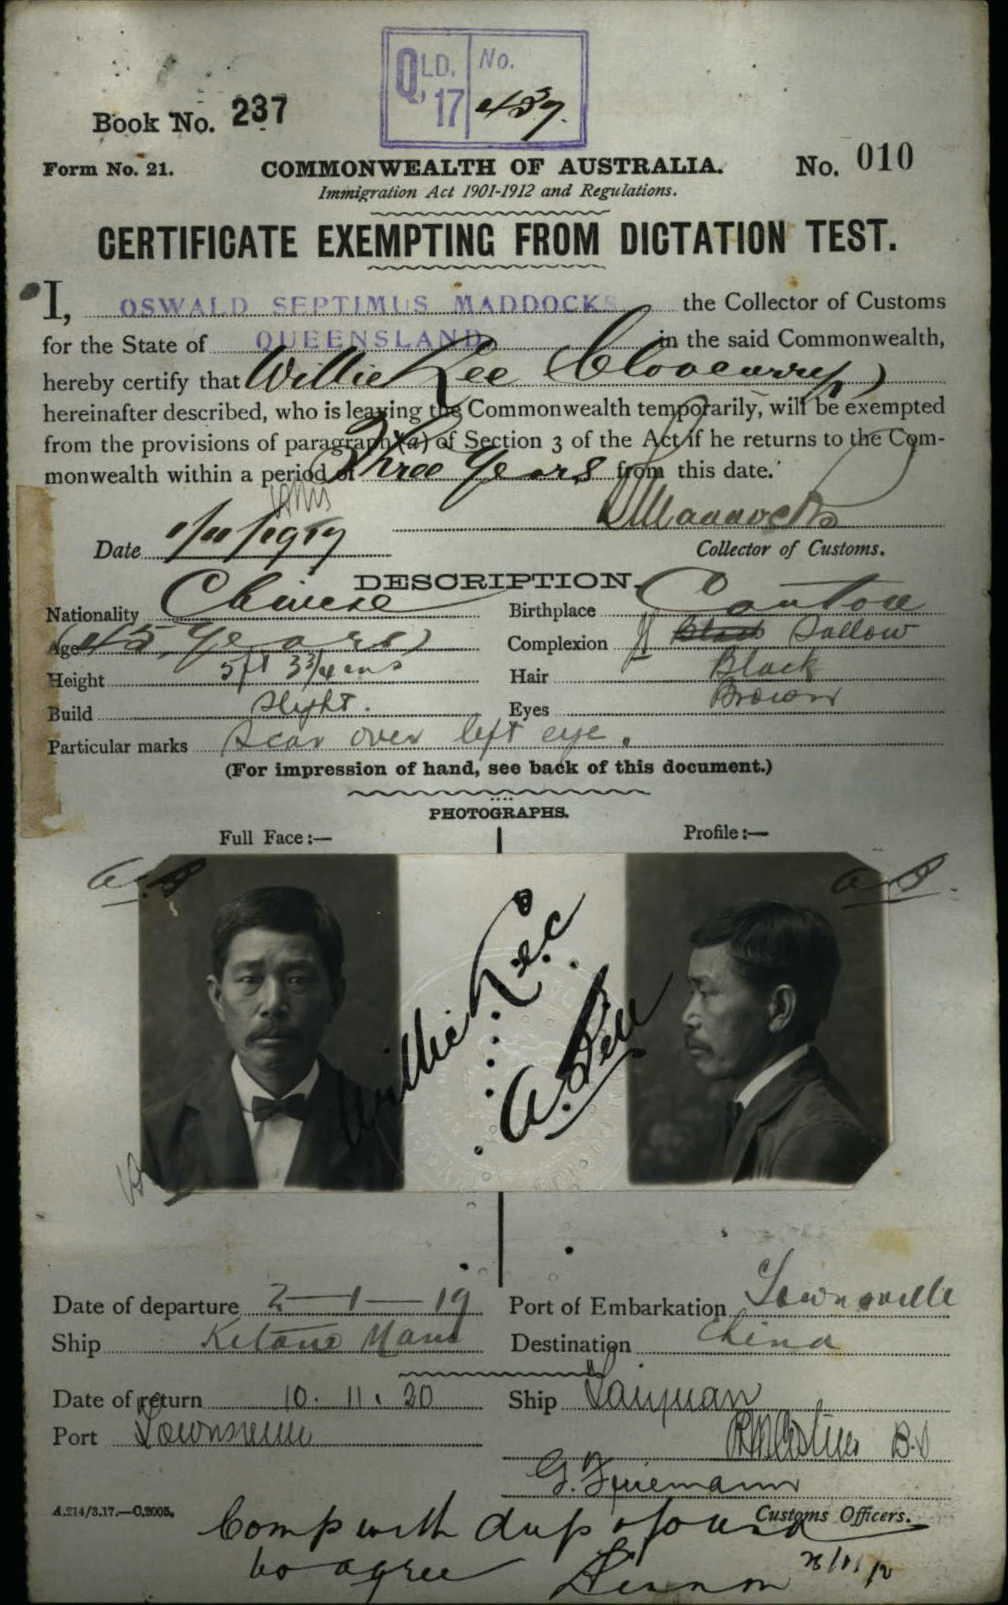 QLD. No.
17 439.
Book No. 237
Form No. 21. COMMONWEALTH OF AUSTRALIA. No. 010
Immigration Act 1901-1912 and Regulations.
CERTIFICATE EXEMPTING FROM DICTATION TEST.
I, OSWALD SEPTIMUS MADDOCKS the Collector of Customs
for the State of QUEENSLAND in the said Commonwealth,
hereby certify that Willie Lee (Cloncurry)
hereinafter described, who is leaving the Commonwealth temporarily, will be exempted
from the provisions of paragraph (a) of Section 3 of the Act if he returns to the Com-
monwealth within a period of Three Years from this date.
Date Collector of Customs.
DESCRIPTION.
Nationality Chinese Birthplace Canton
Age (45 Years) Complexion Black Sallow
Height 5ft 3 3/4 ins Hair Black
Build Slight. Eyes Brown
Particular marks Scar over left eye.
(For impression of hand, see back of this document.)
PHOTOGRAPHS.
Full Face:— Profile:—
Willie Lee
Date of departure 2—1—19 Port of Embarkation Townsville
Ship Kitano Maru Destination China
Date of return 10. 11. 20 Ship Taiyuan
Port Townsville
Customs Officers.
A.214/3.17.—C.2005.
Comp with dup & found
to agree